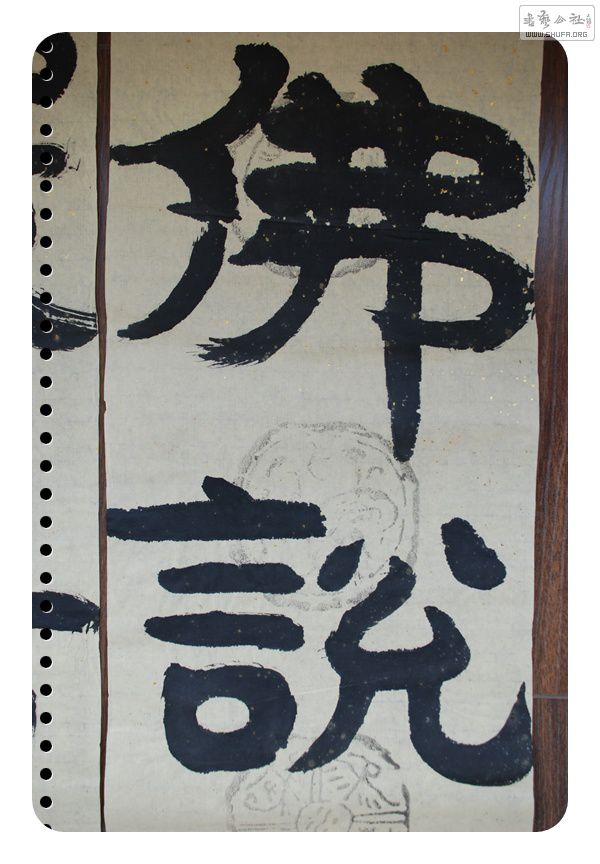 佛說
書藝公社
WWW.SHUFA.ORG